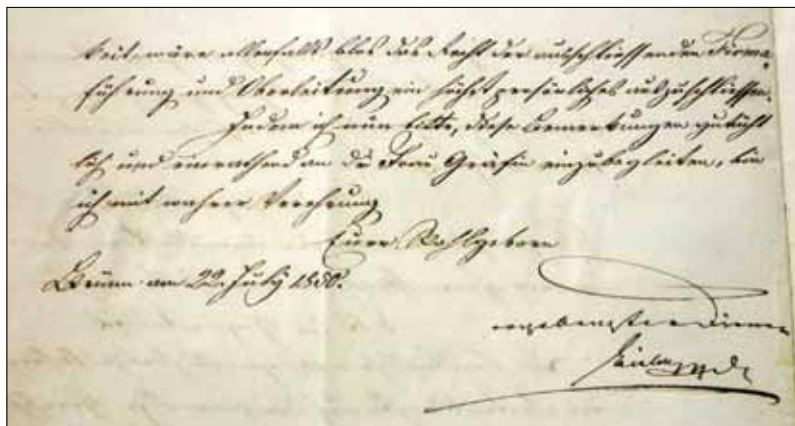 keit, wäre allenfalls blos das Recht der ausschliessenden Firma,
führung und Oberleitung ein höchst persönliches auszuschliessen.
Indem ich nun bitte, diese Bemerkungen
lich und einrathend an die Frau Gräfin einzubegleiten, bin
ich mit wahrer Verehrung
Euer Wohlgeborn
Brünn am 22. July 1850.
ergebenster Diener